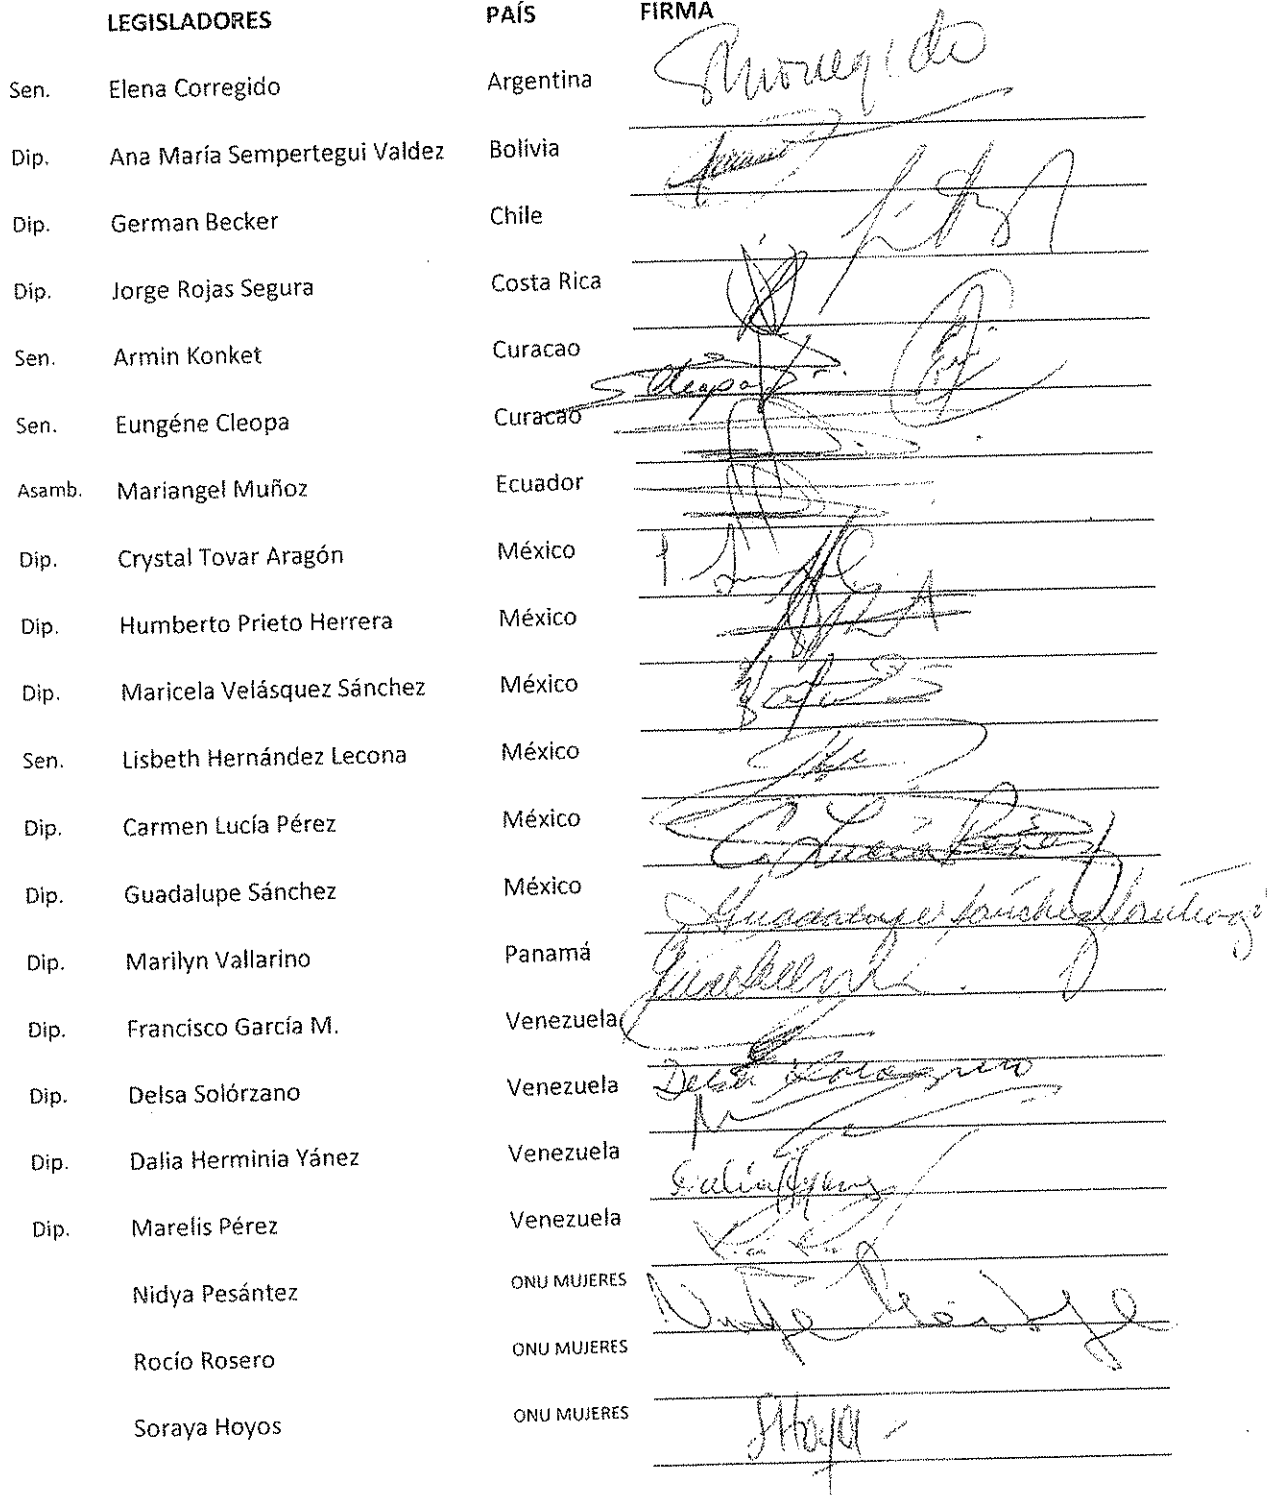 LEGISLADORES PAÍS FIRMA
Sen. Elena Corregido Argentina
Dip. Ana María Sempertegui Valdez Bolivia
Dip. German Becker Chile
Dip. Jorge Rojas Segura Costa Rica
Sen. Armin Konket Curacao
Sen. Eungéne Cleopa Curacao
Asamb. Mariangel Muñoz Ecuador
Dip. Crystal Tovar Aragón México
Dip. Humberto Prieto Herrera México
Dip. Maricela Velásquez Sánchez México
Sen. Lisbeth Hernández Lecona México
Dip. Carmen Lucía Pérez México C. Lucía Pérez
Dip. Guadalupe Sánchez México Guadalupe Sánchez Santiago
Dip. Marilyn Vallarino Panamá
Dip. Francisco García M. Venezuela
Dip. Delsa Solórzano Venezuela Delsa Solórzano
Dip. Dalia Herminia Yánez Venezuela
Dip. Marelis Pérez Venezuela
Nidya Pesántez ONU MUJERES
Rocío Rosero ONU MUJERES
Soraya Hoyos ONU MUJERES SHoyos